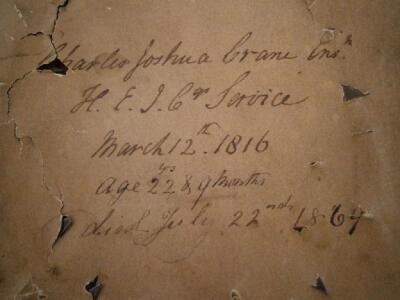 Charles Joshua Crane Ens.n
H. E. I. Cos Service
March 12th. 1816
Age 22 yrs & 9 Months
died July 22nd 1864